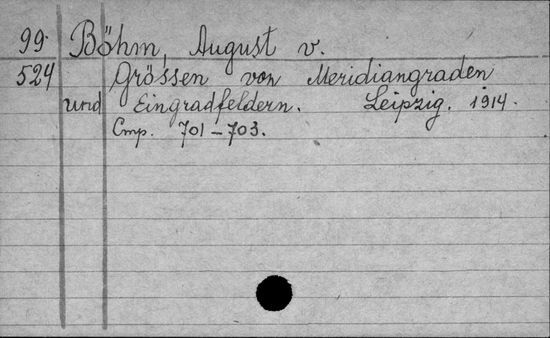 99. Böhm, August v.
524 Grössen von Meridiangraden
und Eingradfeldern. Leipzig. 1914.
Стр. 701-703.